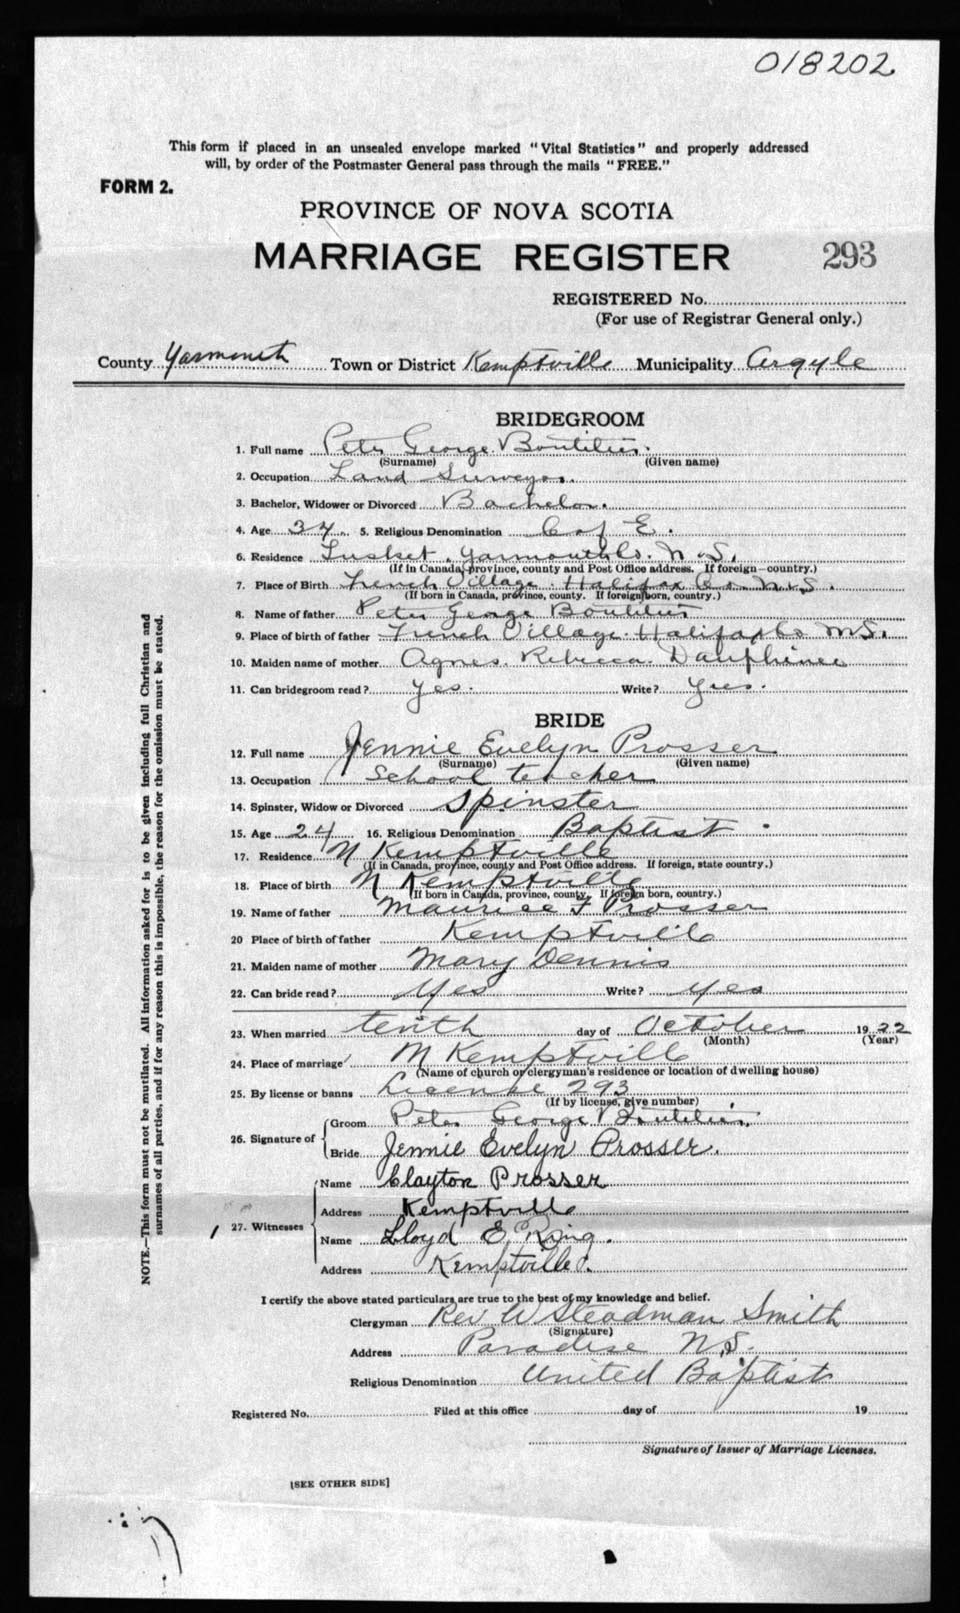 018202
This form if placed in an unsealed envelope marked "Vital Statistics" and properly addressed
will, by order of the Postmaster General pass through the mails "FREE."
FORM 2.
PROVINCE OF NOVA SCOTIA
MARRIAGE REGISTER 293
REGISTERED No.
(For use of Registrar General only.)
County Yarmouth Town or District Kemptville Municipality Argyle
BRIDEGROOM
1. Full name Peter George Boutilier.
(Surname) (Given name)
2. Occupation Land Surveyor.
3. Bachelor, Widower or Divorced Bachelor.
4. Age 34 5. Religious Denomination C of E.
6. Residence Tusket, Yarmouth Co. N.S.
(If in Canada, province, county and Post Office address. If foreign—country.)
7. Place of Birth French Village. Halifax Co. N.S.
(If born in Canada, province, county. If foreign born, country.)
8. Name of father Peter George Boutilier
9. Place of birth of father French Village. Halifax Co N.S.
10. Maiden name of mother Agnes. Rebecca. Dauphinee
11. Can bridegroom read? Yes. Write? Yes.
BRIDE
12. Full name Jennie Evelyn Prosser
(Surname) (Given name)
13. Occupation School teacher
14. Spinster, Widow or Divorced Spinster
15. Age 24 16. Religious Denomination Baptist.
17. Residence N Kemptville
(If in Canada, province, county and Post Office address. If foreign, state country.)
18. Place of birth N Kemptville
(If born in Canada, province, county. If foreign born, country.)
19. Name of father Maurice F Prosser
20 Place of birth of father Kemptville
21. Maiden name of mother Mary Dennis
22. Can bride read? Yes Write? yes
23. When married tenth day of October 1922
(Month) (Year)
24. Place of marriage N Kemptville
(Name of church or clergyman's residence or location of dwelling house)
25. By license or banns License 293
(If by license, give number)
26. Signature of Groom Peter George Boutilier.
Bride Jennie Evelyn Prosser.
27. Witnesses Name Clayton Prosser
Address Kemptville
Name Lloyd E. King.
Address Kemptville.
I certify the above stated particulars are true to the best of my knowledge and belief.
Clergyman Rev W Steadman Smith
(Signature)
Address Paradise N.S.
Religious Denomination United Baptist
Registered No. Filed at this office day of 19
Signature of Issuer of Marriage Licenses.
[SEE OTHER SIDE]
NOTE.—This form must not be mutilated. All information asked for is to be given including full Christian and
surnames of all parties, and if for any reason this is impossible, the reason for the omission must be stated.